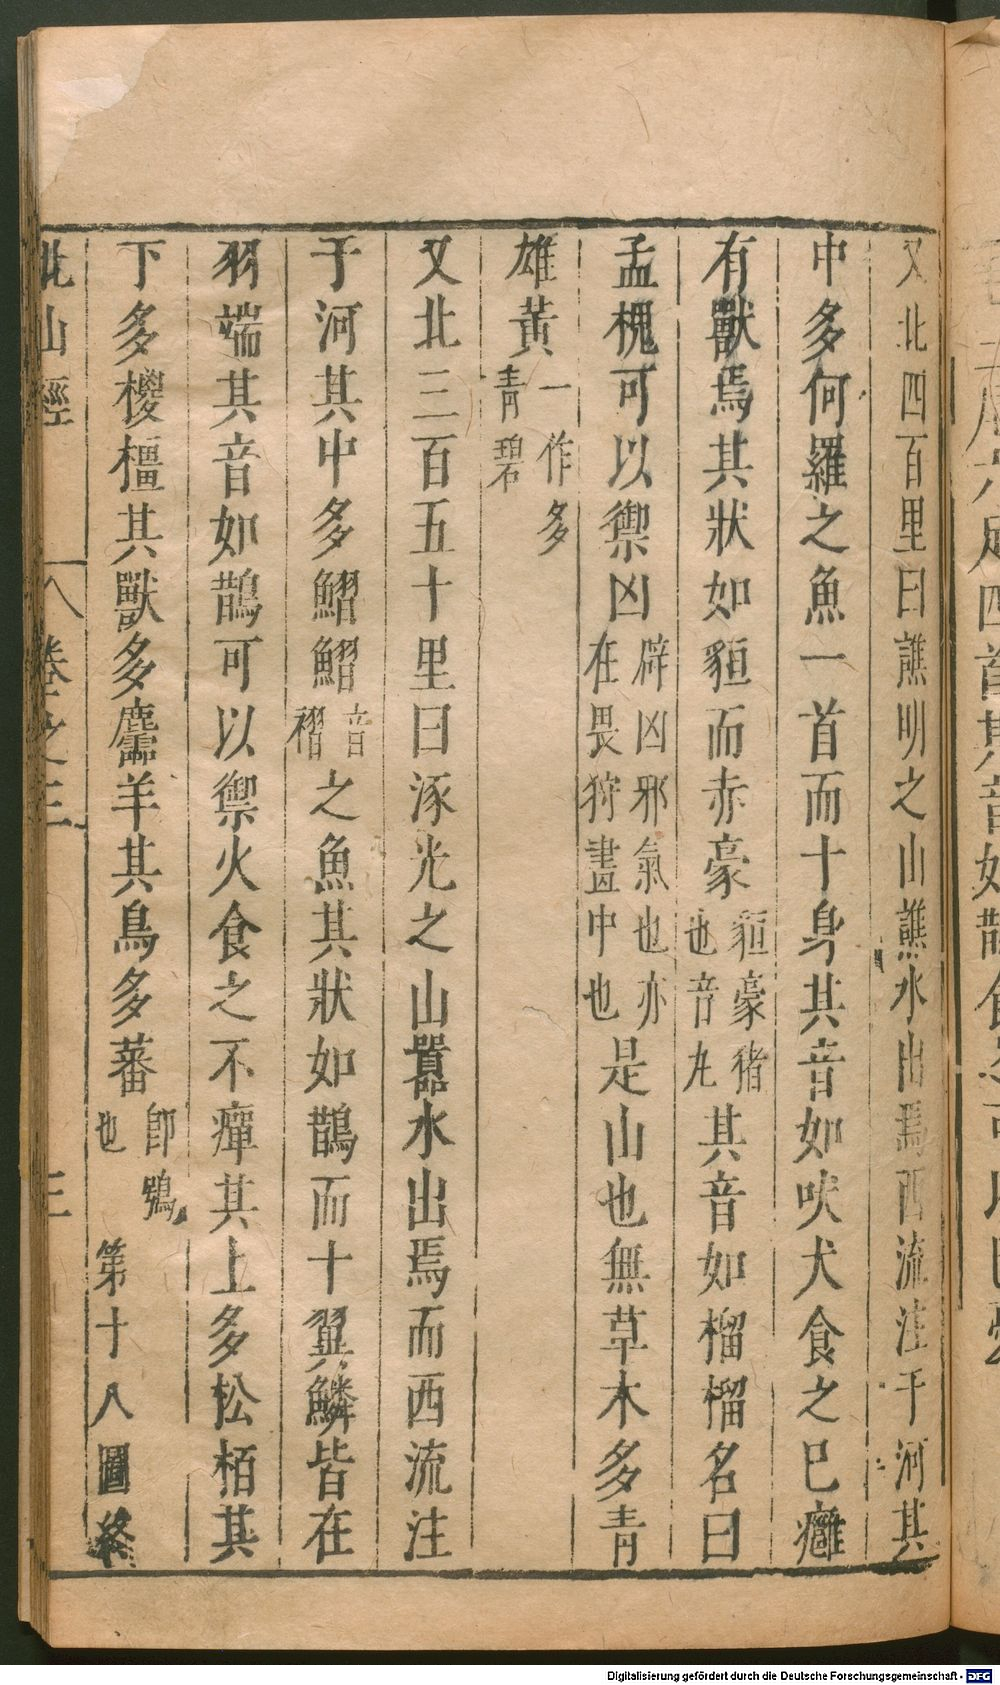 又北四百里曰譙明之山譙水出焉西流注于河其
中多何羅之魚一首而十身其音如吠犬食之已癰
有獸焉其狀如貆而赤豪貆豪猪也音丸其音如榴榴名曰
孟槐可以禦凶辟凶邪氣也亦在畏狩畫中也是山也無草木多青
雄黃一作多青碧
又北三百五十里曰涿光之山嚻水出焉而西流注
于河其中多鰼鰼音褶之魚其狀如鵲而十翼鱗皆在
羽端其音如鵲可以禦火食之不癉其上多松栢其
下多椶橿其獸多麢羊其鳥多蕃卽鴞也 第十八圖終
北山經 卷之三 三
Digitalisierung gefördert durch die Deutsche Forschungsgemeinschaft - DFG